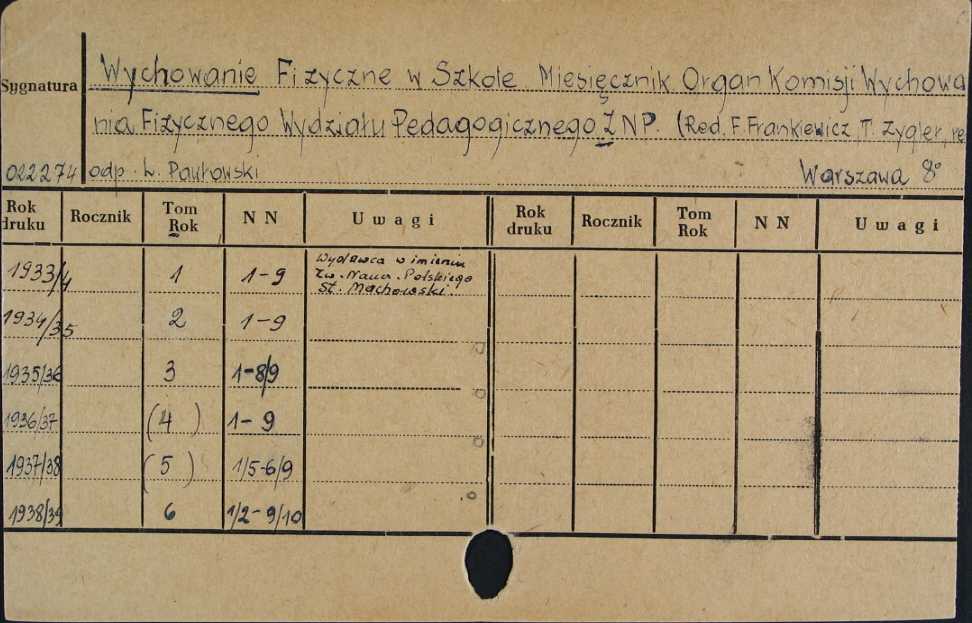 Wychowanie Fizyczne w Szkole Miesięcznik Organ Komisji Wychowa
Sygnatura
nia Fizycznego Wydziału Pedagogicznego ZNP. (Red. F. Frankiewicz, T. Zygler, re
022274 odp. L. Pawłowski Warszawa 8°
Rok druku Rocznik Tom Rok N N Uwagi Rok druku Rocznik Tom Rok N N Uwagi
1933/4 1 1-9 Wydawca w imieniu
Zw. Naucz. Polskiego
St. Machowski.
1934/35 2 1-9
1935/36 3 1-8/9
1936/37 (4) 1-9
1937/38 (5) 1/5-6/9
1938/39 6 1/2-9/10